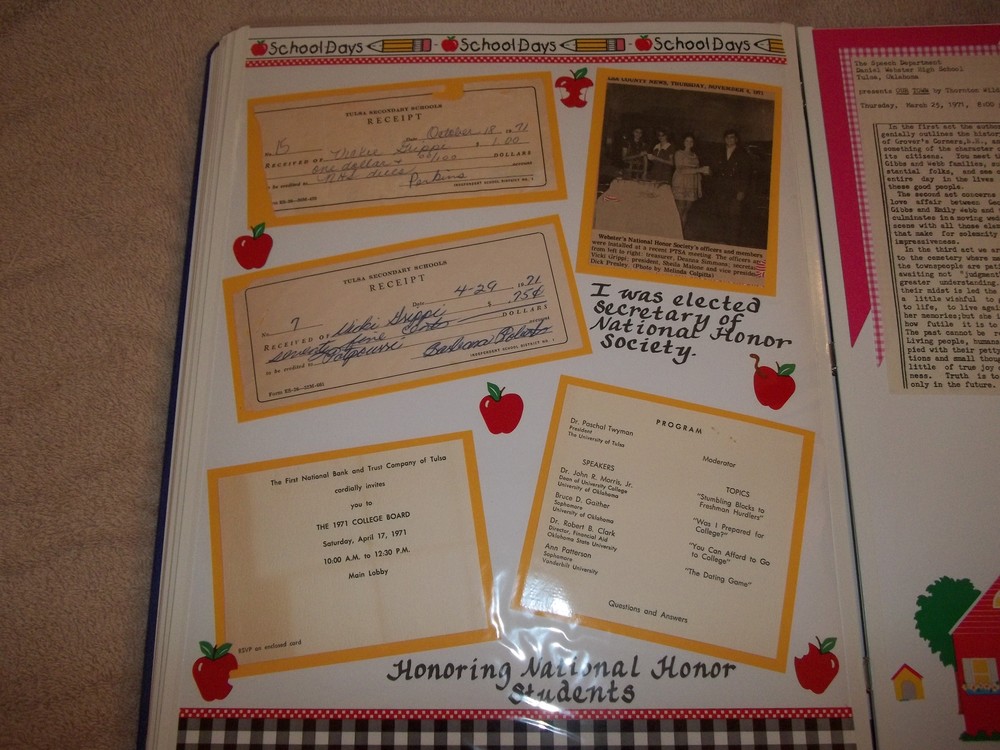 School Days - School Days - School Days
TULSA SECONDARY SCHOOLS
RECEIPT
No. 15 Date October 18 1971
RECEIVED OF Vickie Grippi $ 1.00
one dollar & 00/100 DOLLARS
to be credited to NHS dues account
Perkins
INDEPENDENT SCHOOL DISTRICT NO. 1
COUNTY NEWS, THURSDAY, NOVEMBER 4, 1971
Webster's National Honor Society's officers and members
were installed at a recent PTSA meeting. The officers are
from left to right: treasurer, Deanna Simmons; secretary
Vicki Grippi; president, Sheila Malone and vice president
Dick Presley. (Photo by Melinda Culpitts)
I was elected
Secretary of
National Honor
Society.
TULSA SECONDARY SCHOOLS
RECEIPT
No. 7 Date 4-29 1971
RECEIVED OF Vickie Grippi $ .75¢
seventy five cents DOLLARS
to be credited to Potpourri account
INDEPENDENT SCHOOL DISTRICT NO. 1
The First National Bank and Trust Company of Tulsa
cordially invites
you to
THE 1971 COLLEGE BOARD
Saturday, April 17, 1971
10:00 A.M. to 12:30 P.M.
Main Lobby
RSVP on enclosed card
PROGRAM
Dr. Paschal Twyman
President
The University of Tulsa
Moderator
SPEAKERS
TOPICS
Dr. John R. Morris, Jr.
Dean of University College
University of Oklahoma
"Stumbling Blocks to
Freshman Hurdlers"
Bruce D. Gaither
Sophomore
University of Oklahoma
"Was I Prepared for
College?"
Dr. Robert B. Clark
Director, Financial Aid
Oklahoma State University
"You Can Afford to Go
to College"
Ann Patterson
Sophomore
Vanderbilt University
"The Dating Game"
Questions and Answers
Honoring National Honor
Students
The Speech Department
Daniel Webster High School
Tulsa, Oklahoma
presents OUR TOWN by Thornton
Thursday, March 25, 1971, 8:00
In the first act the author
genially outlines the
of Grover's Corners, N.H.,
something of the character
its citizens. You meet
Gibbs and Webb families,
stantial folks, and see
entire day in the lives
these good people.
The second act concerns
love affair between
Gibbs and Emily Webb and
culminates in a moving
scene with all those
that make for solemnity
impressiveness.
In the third act we
to the cemetery where
the townspeople are
awaiting not "judgment
greater understanding.
their midst is led the
a little wishful to
to life, to live again
her memories; but she
how futile it is to
The past cannot be
Living people, humans
pied with their petty
tions and small
little of true joy
ness. Truth is to
only in the future.